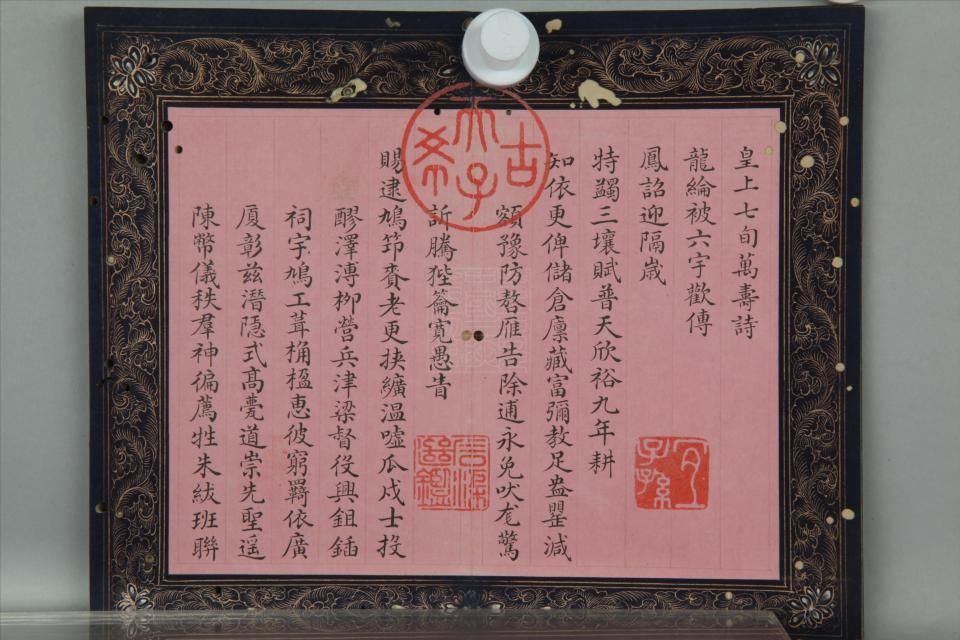 皇上七旬萬壽詩
龍綸被六宇歡傳
鳳詔迎隔歲
特蠲三壤賦普天欣裕九年耕
知依更俾儲倉廪藏富彌教足盎罌減
額豫防嗸雁告除逋永免吠尨驚
訢騰狴籥寬愚眚
賜逮鳩笻賚老更挟纊温噓瓜戍士投
醪澤溥栁營兵津梁督役興鉏鍤
祠宇鳩工葺桷楹恵彼窮羈依廣
厦彰兹潛隐式髙甍道崇先聖遥
陳幣儀秩羣神徧薦牲朱紱班聯
古
天子
希